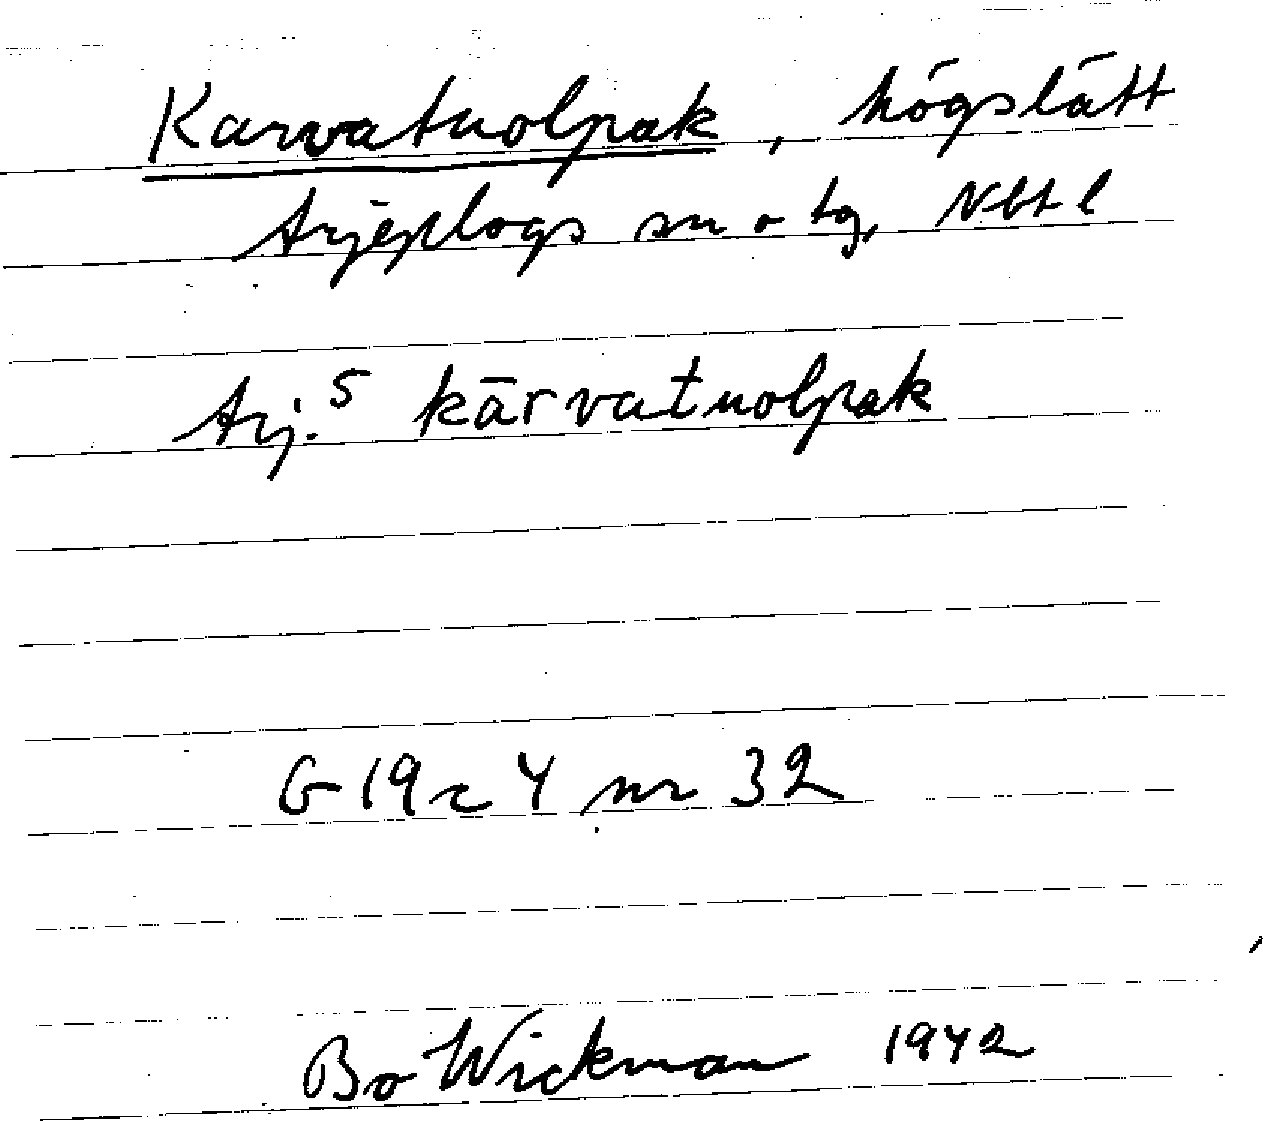 Karvatuolpak, högslätt
Arjeplogs sn o tg, Nbtl
Arj.S kārvatuolpak
G 19 c 4 nr 32
Bo Wickman 1942